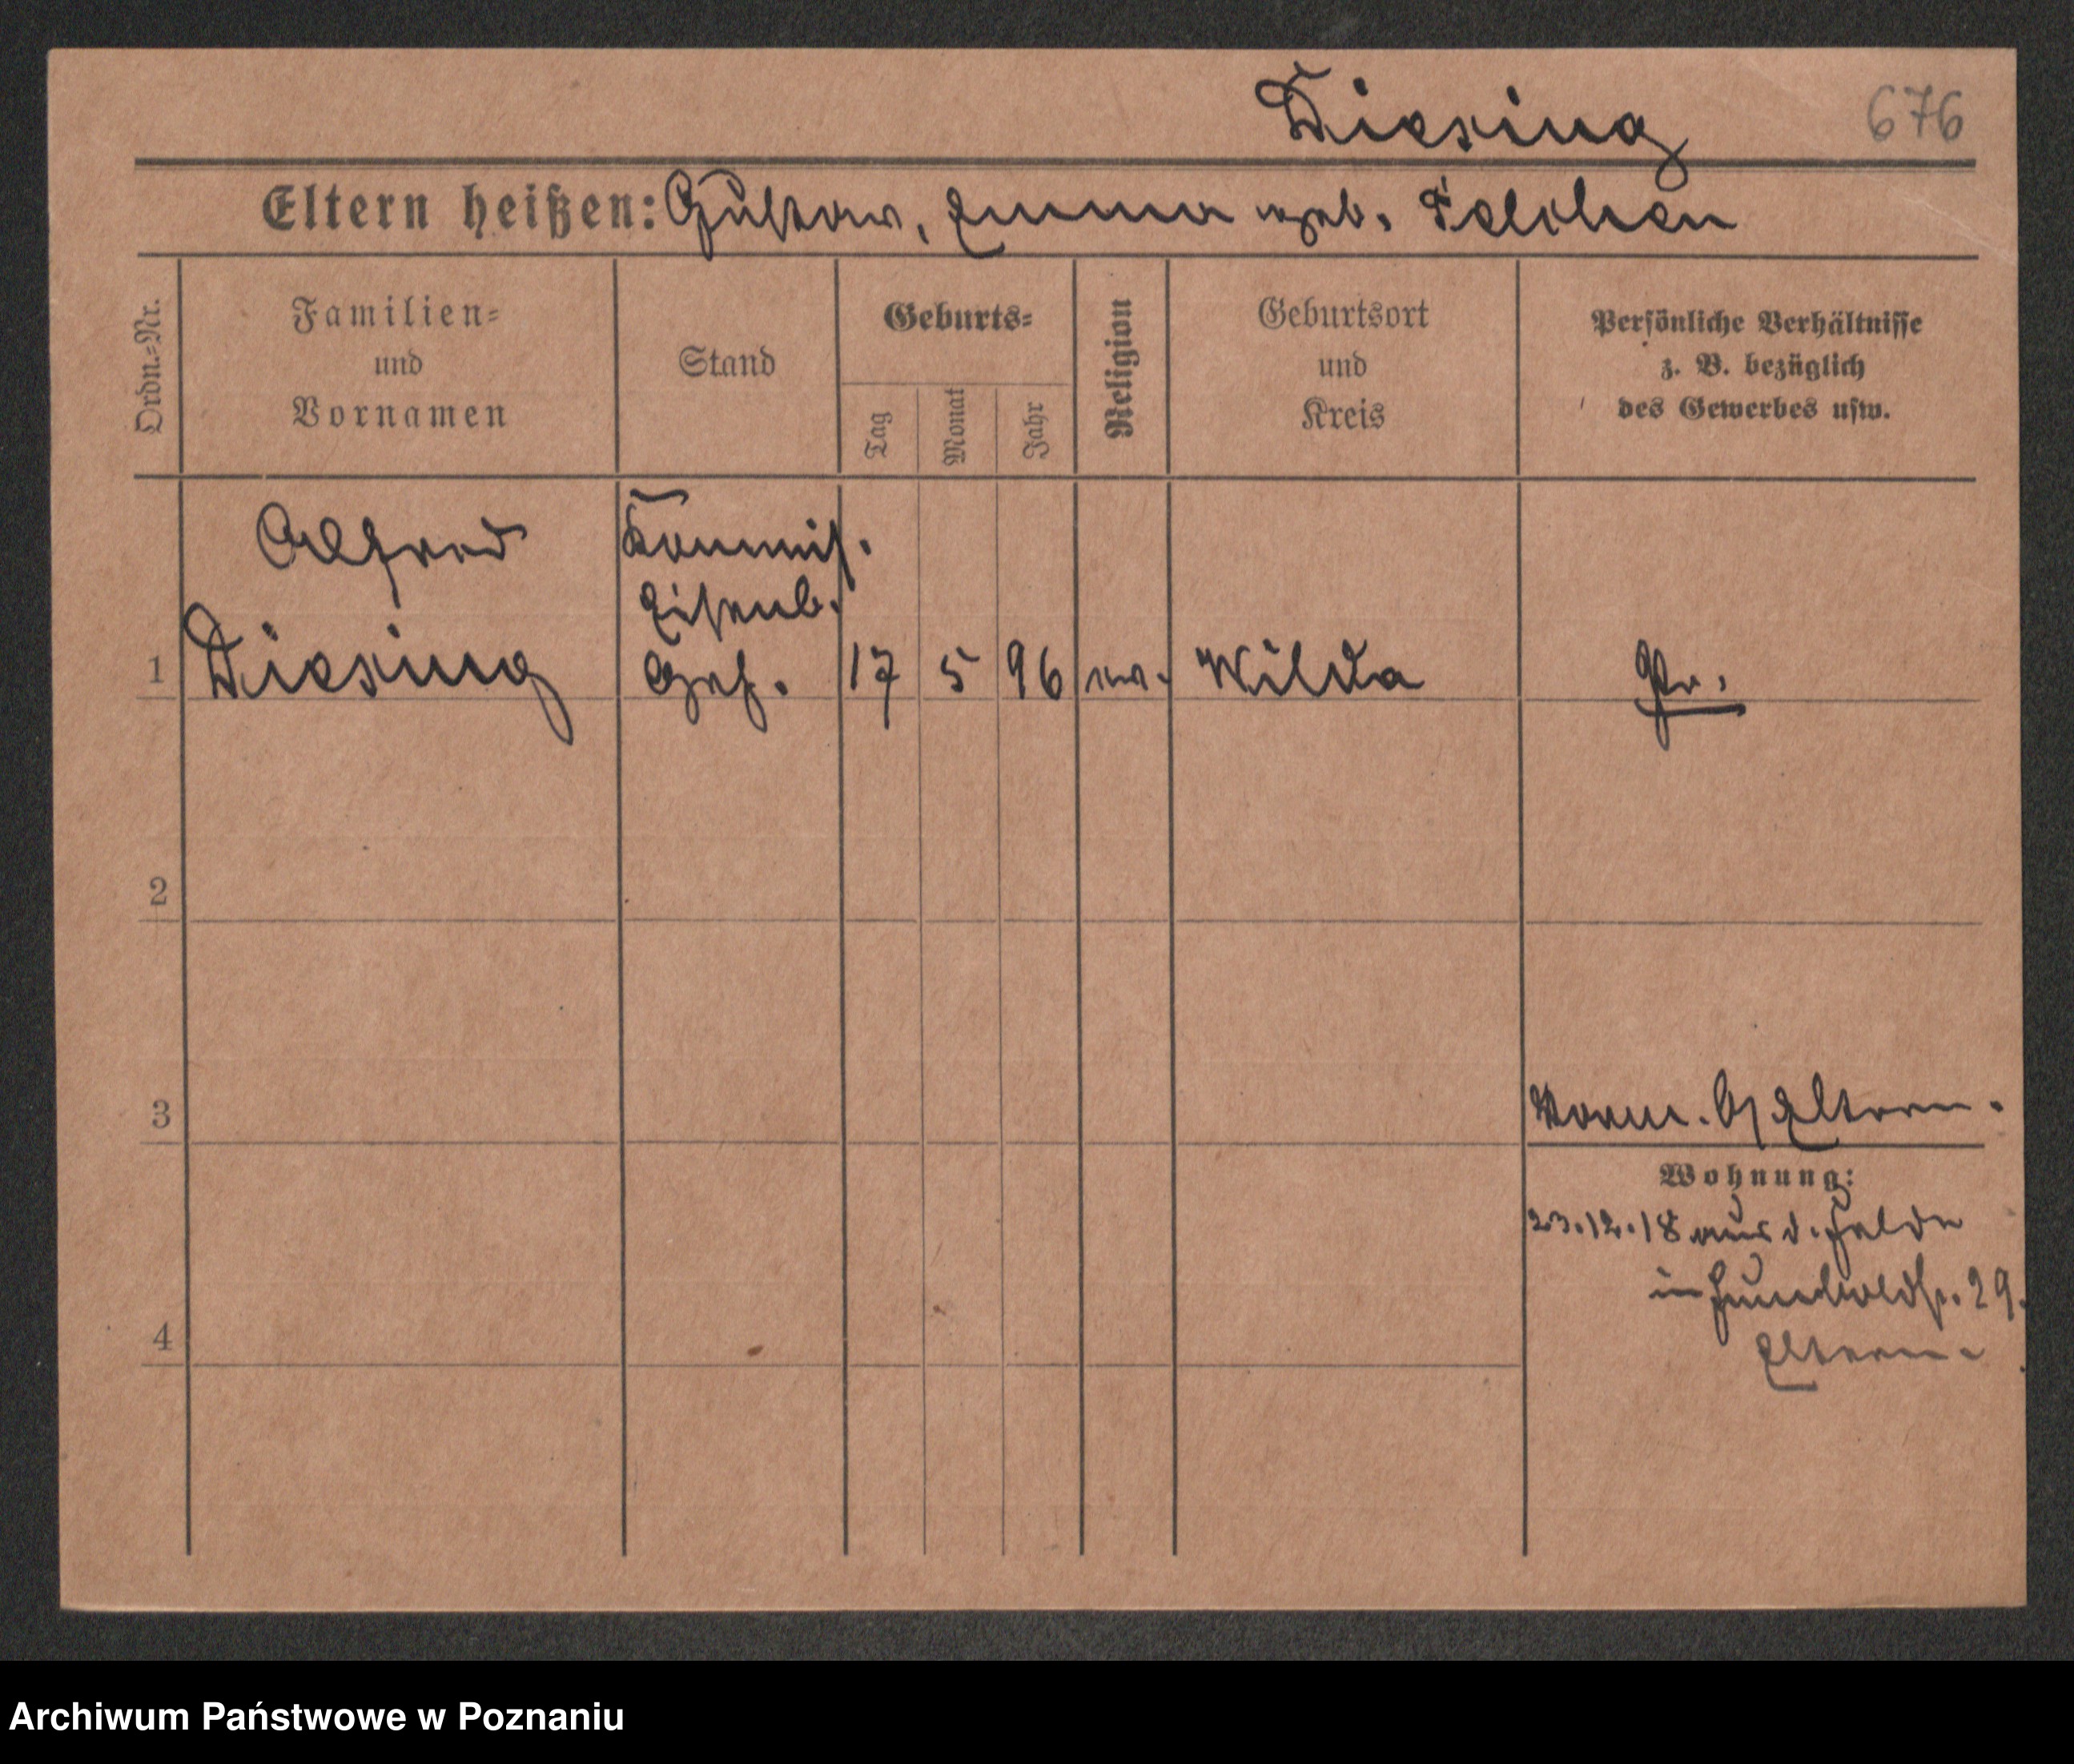 Diesing 676
Eltern heißen: Gustav, Emma geb.
Ordn.-Nr.
Familien-
und
Vornamen
Stand
Geburts-
Tag
Monat
Jahr
Religion
Geburtsort
und
Kreis
Persönliche Verhältnisse
z. B. bezüglich
des Gewerbes usw.
Alfred
Diesing
Kommiss.
Eisenb.
Geh.
1
17 5 96 ev. Wilda Pr.
2
3
Eltern.
Wohnung:
23.12.18 aus d. Felde
in Humboldtstr. 29.
Eltern.
4
Archiwum Państwowe w Poznaniu